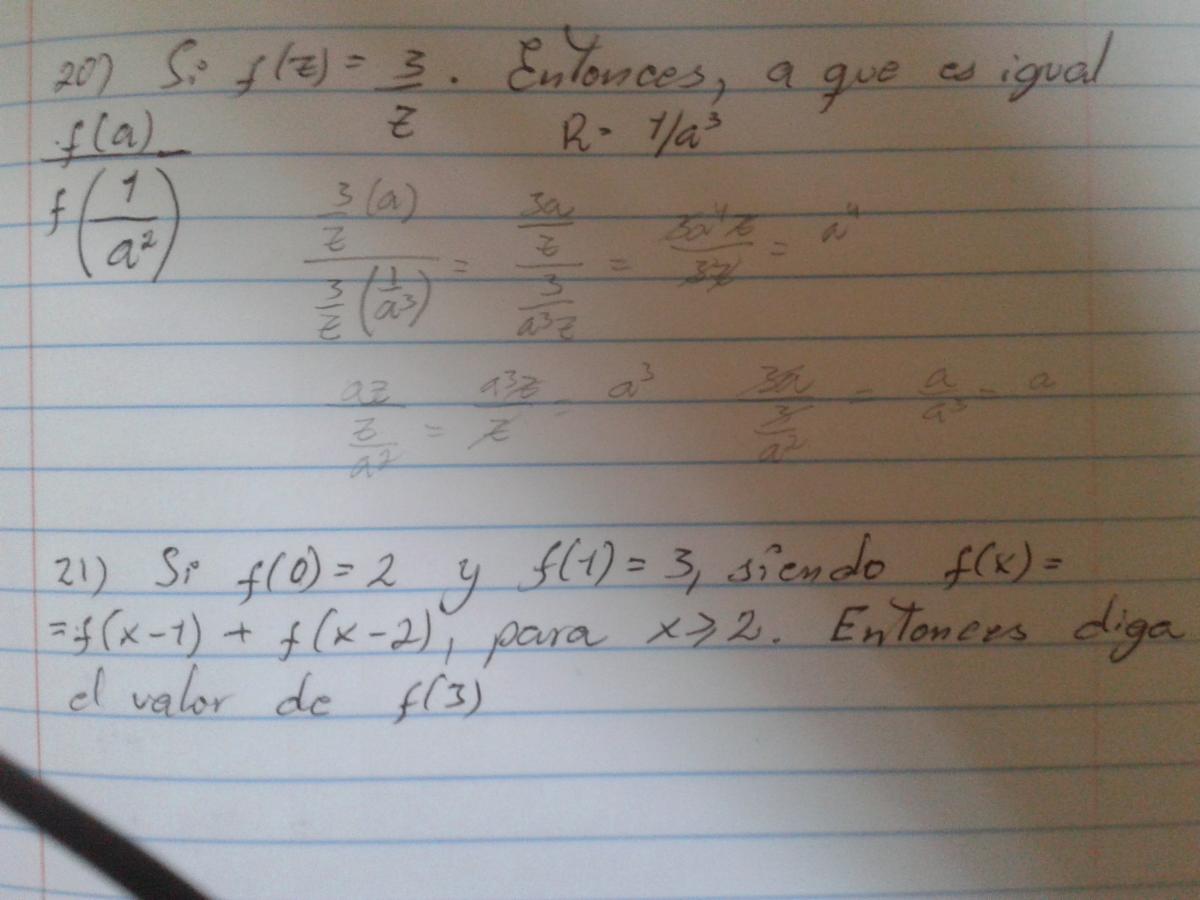 20) Si f(z) = 3/z. Entonces, a que es igual
f(a)/f(1/a²) R = 1/a³
(3/z (a))/(3/z (1/a³)) = (3a/z)/(3/a³z) = 3a⁴z/3z = a⁴
az/(z/a²) = a³z/z = a³ 3a/(3/a²) = a/a³ = a
21) Si f(0) = 2 y f(1) = 3, siendo f(x) =
= f(x-1) + f(x-2), para x ≥ 2. Entonces diga
el valor de f(3)